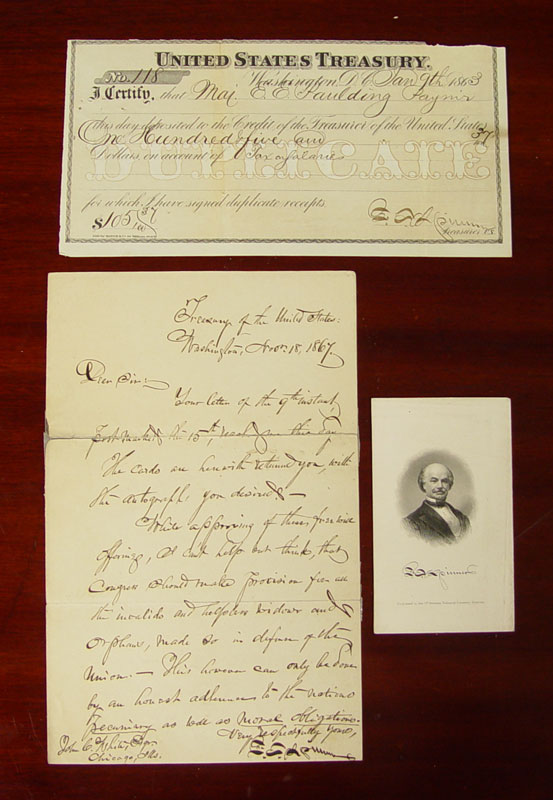 UNITED STATES TREASURY.
No. 118
Washington, D C. Jan 9th 1863
I Certify, that Maj E. E. Paulding Paymr
this day deposited to the Credit of the Treasurer of the United States
One Hundred & five and 37
Dollars, on account of Tax on Salaries
DUPLICATE
for which I have signed duplicate receipts.
$105 37/100
Treasurer U.S.
Treasury of the United States:
Washington, Nov. 18, 1867.
Dear Sir:
Your letter of the 9th instant
post-marked the 15th reached me this day.
The cards are herewith returned you with
the autographs you desired.—
While approving of these free will
offerings, I can't help but think that
Congress should make provision for all
the invalids and helpless widows and
orphans, made so in defence of the
Union.— This however can only be done
by an honest adherence to the nations
pecuniary as well as moral obligations.
Very respectfully yours,
John C. White, Esqr
Chicago, Ills.
F. E. Spinner
F. E. Spinner